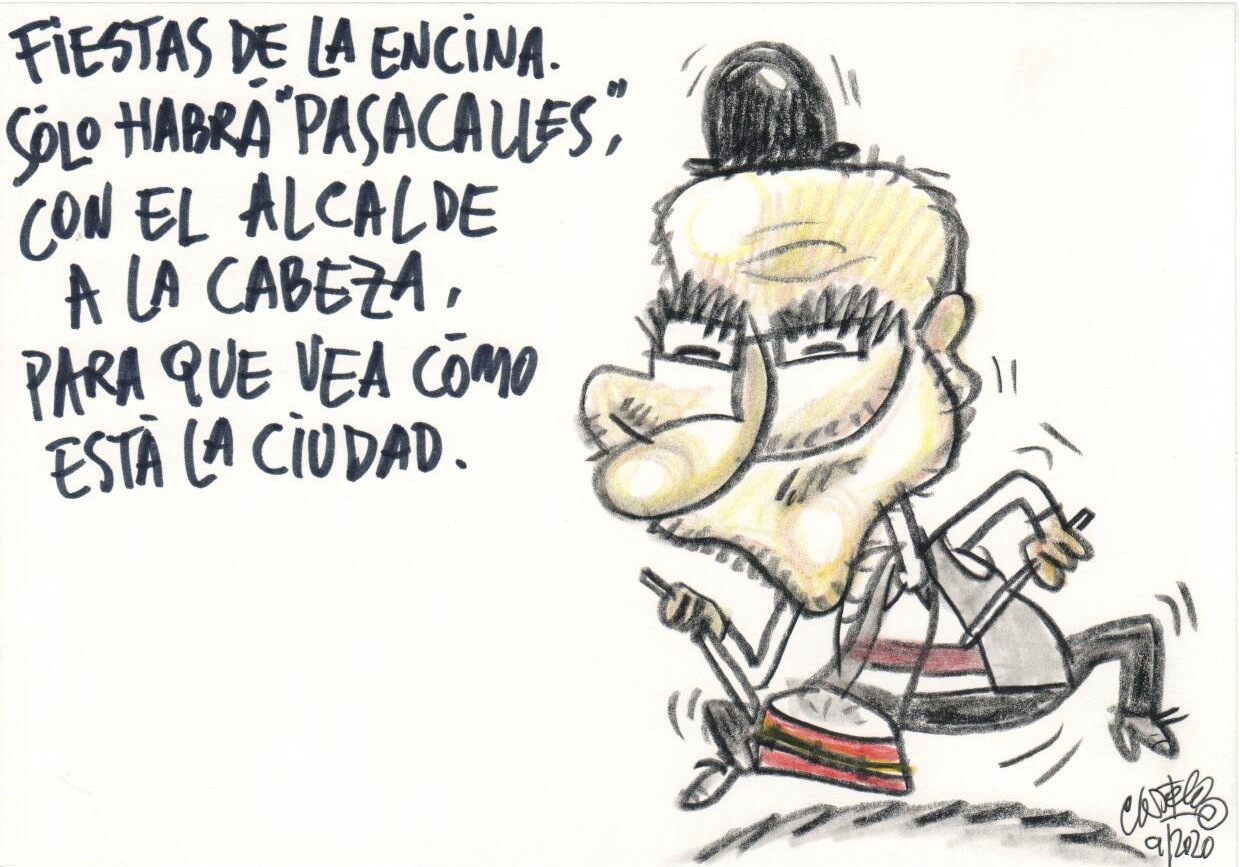 FIESTAS DE LA ENCINA.
SÓLO HABRÁ "PASACALLES",
CON EL ALCALDE
A LA CABEZA,
PARA QUE VEA CÓMO
ESTÁ LA CIUDAD.
9/2020